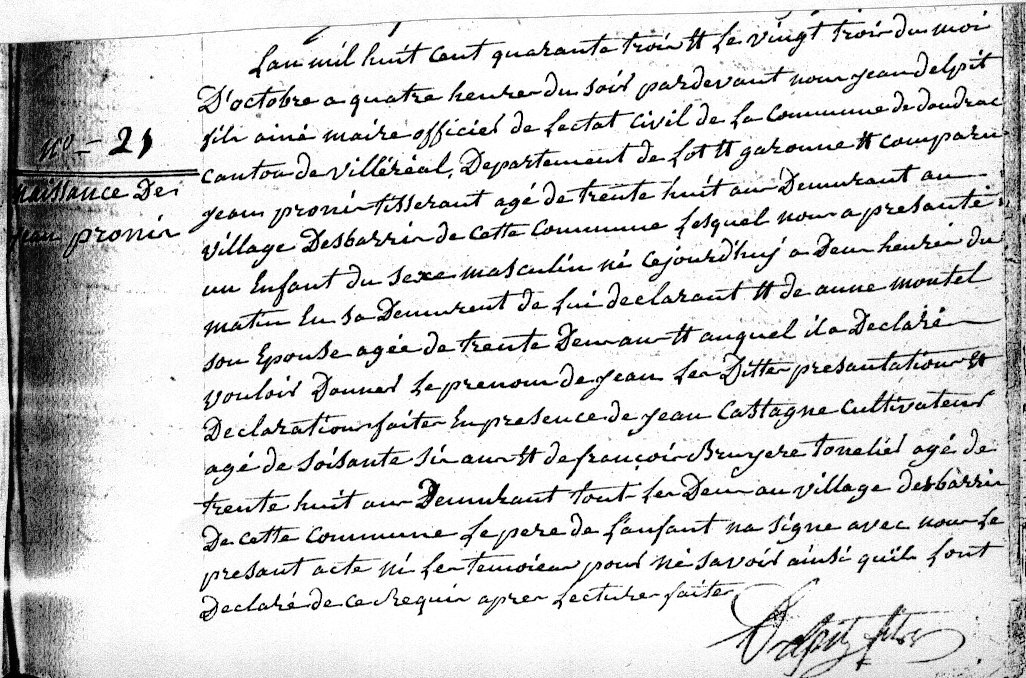 Lan mil huit cent quarante trois et le vingt trois du mois
D'octobre a quatre heures du soir pardevant nous jean delpit
fils ainé maire officier de lectat civil de la Commune de doudrac
canton de villéréal, Departement de lot et garonne et comparu
jean pronis tisserant agé de trente huit ans Demurant au
village Desbarris de cette Commune lesquel nous a presanté
un Enfant du sexe masculin né cejourd'huy a Deux heures du
matin En sa Demurent de lui declarant et de anne montel
son Epouse agée de trente Deux ans et auquel il a Declaré
vouloir Donner le prenom de jean les Dittes presantations et
Declarations faites En presence de jean Castagne Cultivateur
agé de soisante six ans et de françois Bruyere tonelier agé de
trente huit ans Demurant tout les Deux au village desbarris
De cette Commune le pere de l'anfant na signe avec nous le
presant acte ni les temoiens pour né savoir ainsi quils l'ont
Declaré de ce Requis apres lecture faites
Delpit fils
nº 21
naissance De
jean pronis